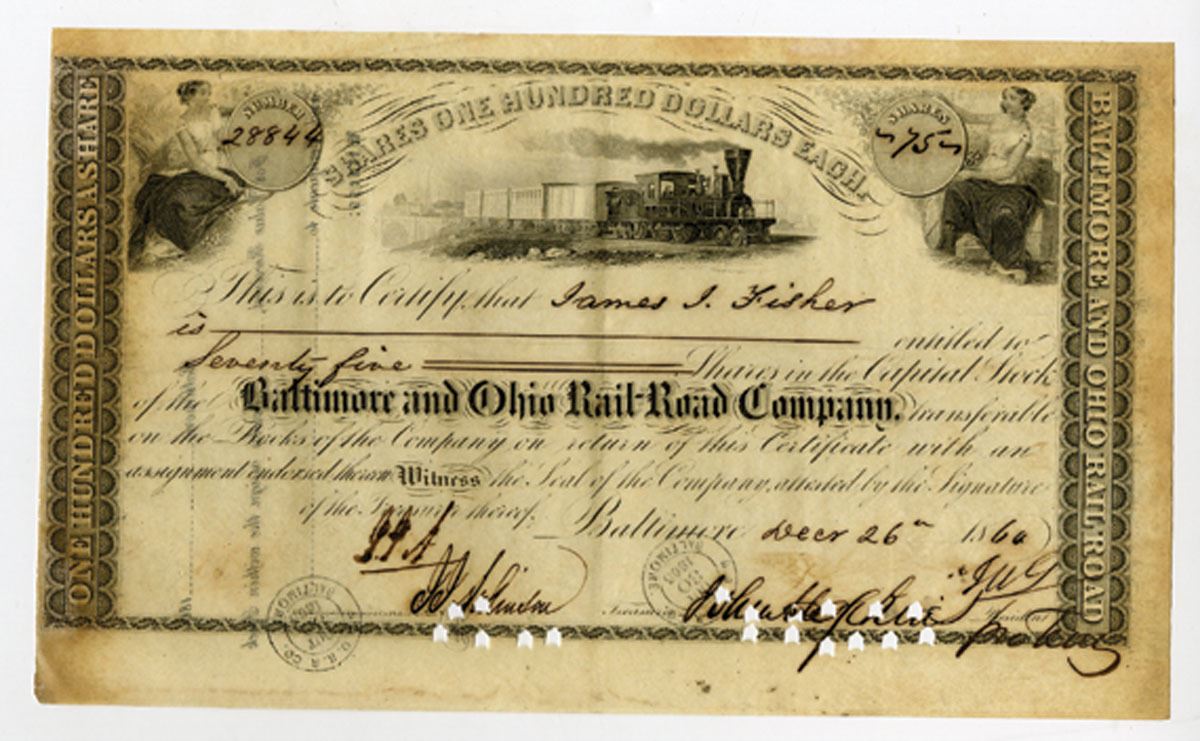 SHARES ONE HUNDRED DOLLARS EACH.
NUMBER
28844
SHARES
75
ONE HUNDRED DOLLARS A SHARE
BALTIMORE AND OHIO RAIL-ROAD
This is to Certify, that James I. Fisher
is entitled to
Seventy five Shares in the Capital Stock
of the Baltimore and Ohio Rail-Road Company, transferable
on the Books of the Company on return of this Certificate with an
assignment endorsed thereon Witness the Seal of the Company, attested by the Signature
of the Treasurer thereof, Baltimore Decr 26th 1860
Treasurer
President
BALTIMORE
O. R. R. CO.
BALTIMORE
1863